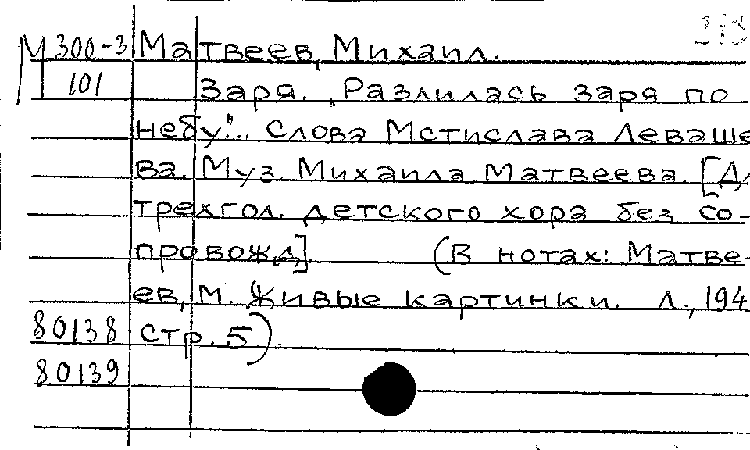 М 300-3 Матвеев, Михаил.
101 Заря. „Разлилась заря по
небу"... Слова Мстислава Леваше
ва. Муз. Михаила Матвеева. [Дл
трехгол. детского хора без со-
провожд]. (В нотах: Матве-
ев, М. Живые картинки. Л., 194
80138 стр. 5)
80139